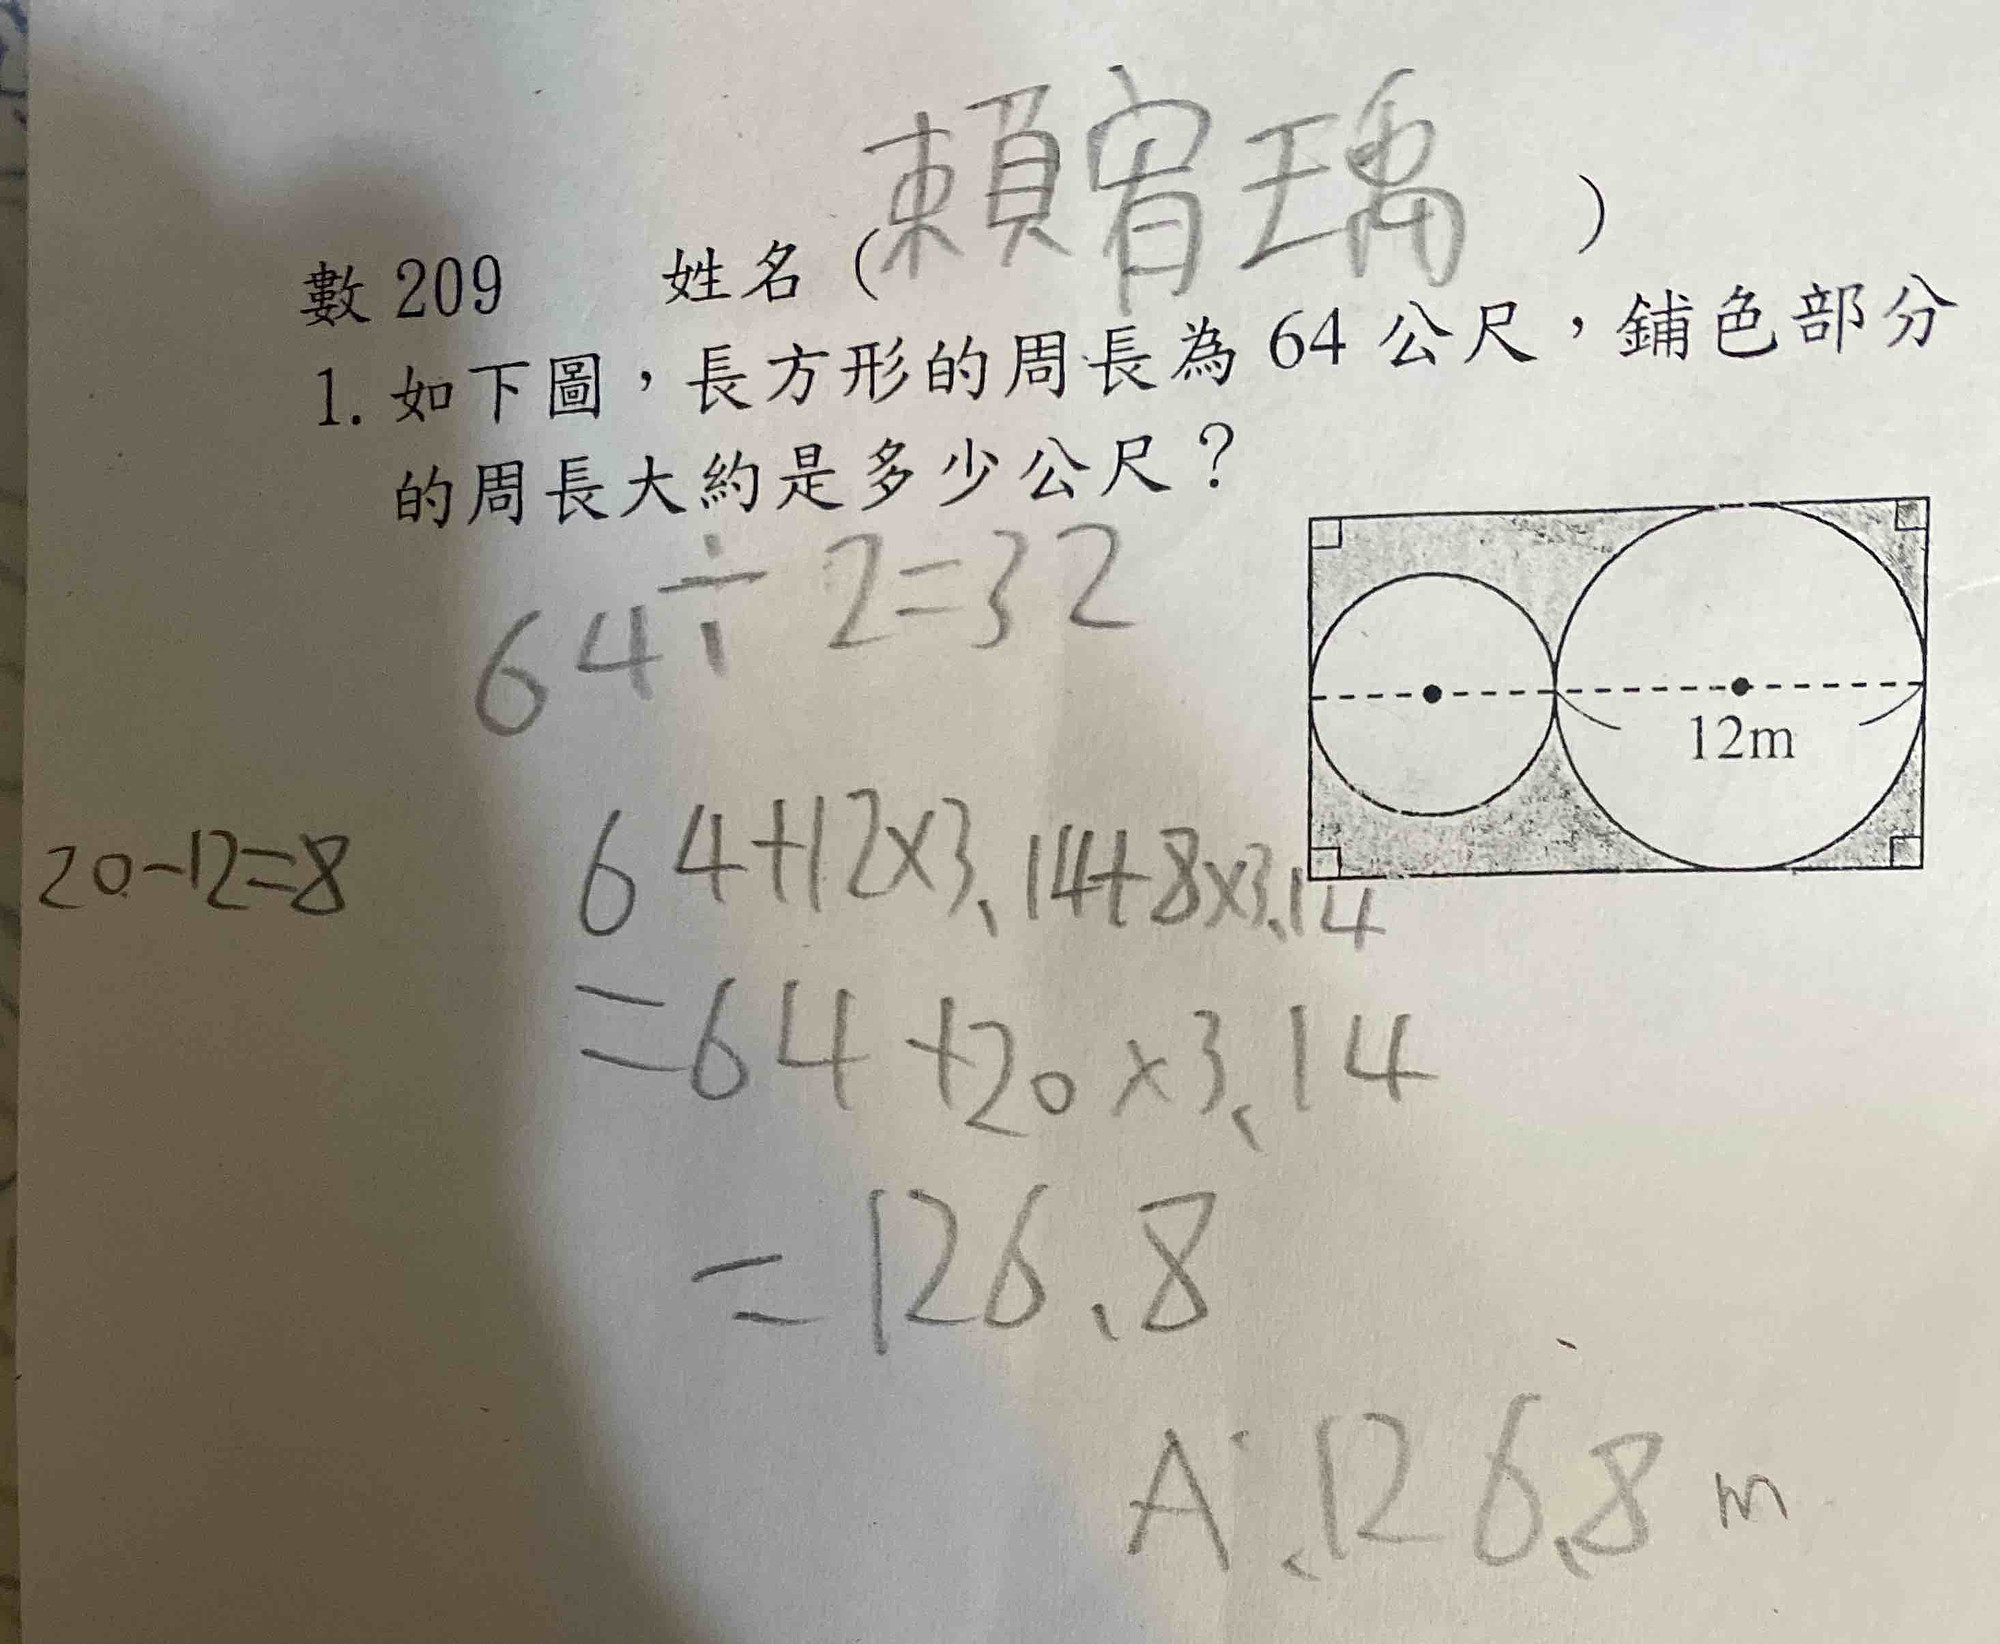 數 209 姓名 (賴宥瑀)
1. 如下圖，長方形的周長為 64 公尺，鋪色部分
的周長大約是多少公尺？
64÷2=32
12m
20-12=8
64+12×3.14+8×3.14
=64+20×3.14
=126.8
A:126.8m